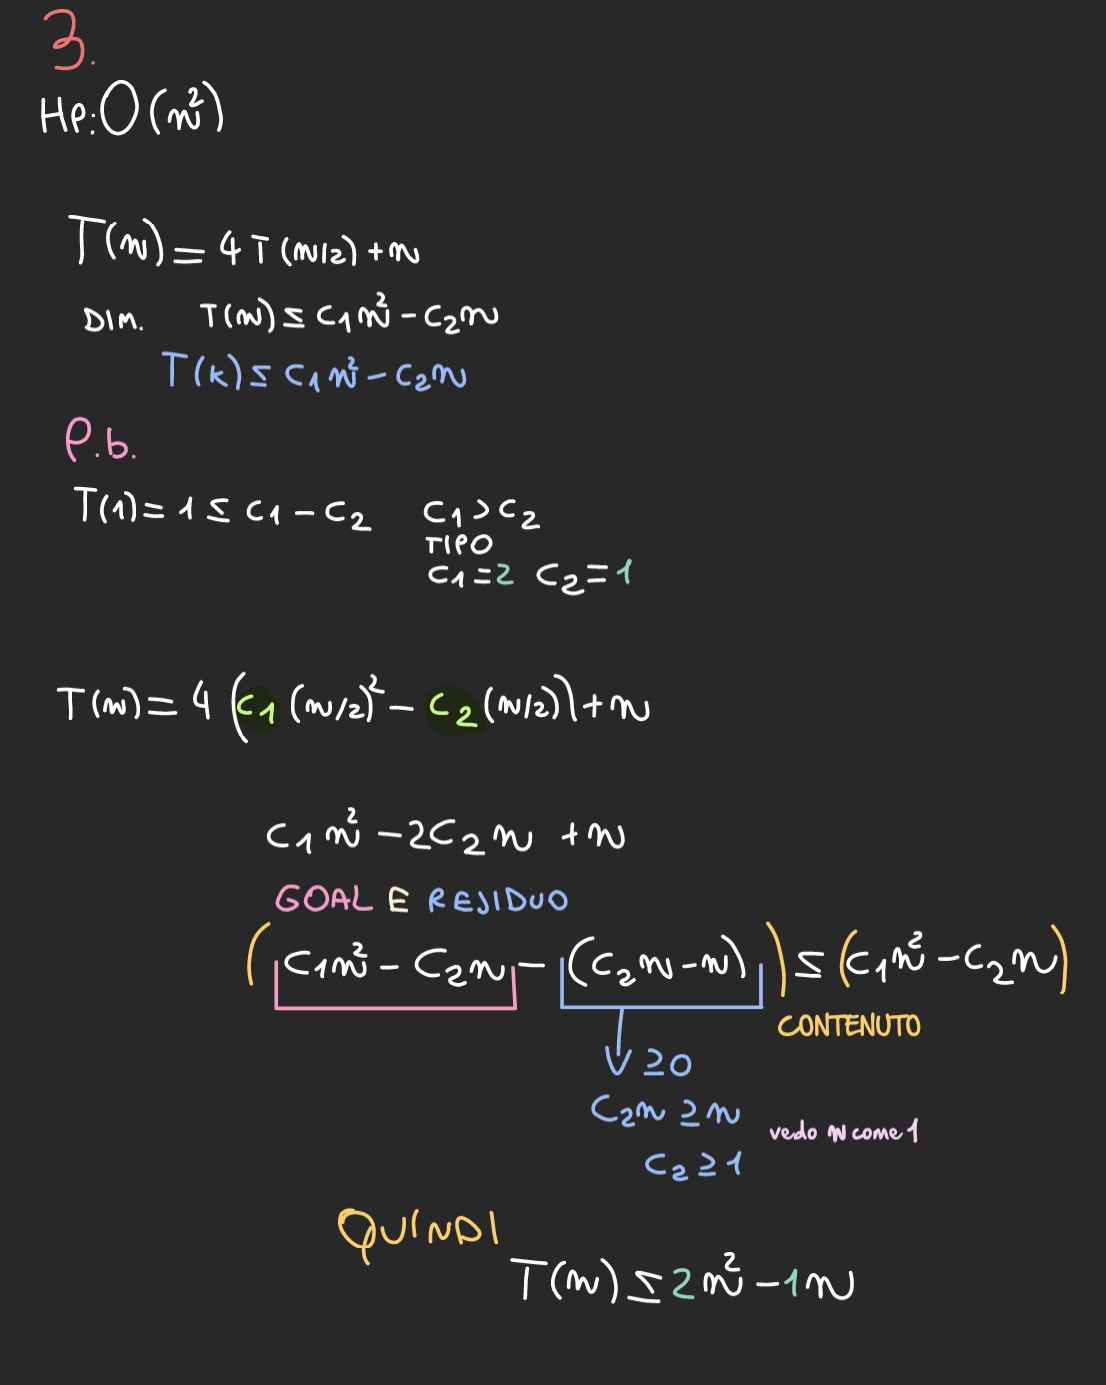 3.
HP: O(n²)
T(n) = 4T(n/2) + n
DIM. T(n) ≤ C₁n² - C₂n
T(k) ≤ C₁n² - C₂n
P.b.
T(1) = 1 ≤ C₁ - C₂ C₁ > C₂
TIPO
C₁ = 2 C₂ = 1
T(n) = 4 (C₁(n/2)² - C₂(n/2)) + n
C₁n² - 2C₂n + n
GOAL E RESIDUO
(C₁n² - C₂n - (C₂n - n)) ≤ (C₁n² - C₂n)
CONTENUTO
≥ 0
C₂n ≥ n
vedo n come 1
C₂ ≥ 1
QUINDI
T(n) ≤ 2n² - 1n